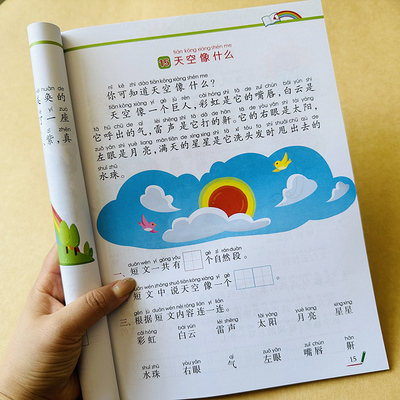 tiān kōng xiàng shén me
天空像什么
nǐ kě zhī dào tiān kōng xiàng shén me
你可知道天空像什么?
tiān kōng xiàng yí gè jù rén cǎi hóng shì tā de zuǐ chún bái yún shì
天空像一个巨人,彩虹是它的嘴唇,白云是
tā hū chū de qì léi shēng shì tā dǎ de hān tā de yòu yǎn shì tài yáng
它呼出的气,雷声是它打的鼾。它的右眼是太阳,
zuǒ yǎn shì yuè liang mǎn tiān de xīng xing shì tā xǐ tóu fa shí shuǎi chū qù de
左眼是月亮,满天的星星是它洗头发时甩出去的
shuǐ zhū
水珠。
duǎn wén yí gòng yǒu gè zì rán duàn
一、短文一共有 个自然段。
duǎn wén zhōng shuō tiān kōng xiàng yí gè
短文中说天空像一个 。
gēn jù duǎn wén nèi róng lián yì lián
根据短文内容连一连。
cǎi hóng bái yún léi shēng tài yáng yuè liang xīng xing
彩虹 白云 雷声 太阳 月亮 星星
shuǐ zhū yòu yǎn qì zuǒ yǎn zuǐ chún hān
水珠 右眼 气 左眼 嘴唇 鼾
15